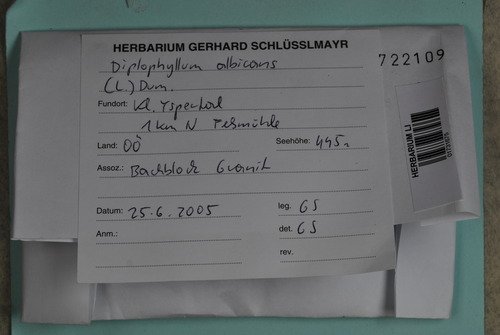 HERBARIUM GERHARD SCHLÜSSLMAYR
Diplophyllum albicans
(L.) Dum.
Fundort: Kl. Yspertal
1 km N
Land: OÖ Seehöhe: 445
Assoz.: Bachblock Granit
Datum: 25.6.2005 leg. GS
Anm.: det. GS
rev.
722109
HERBARIUM LI